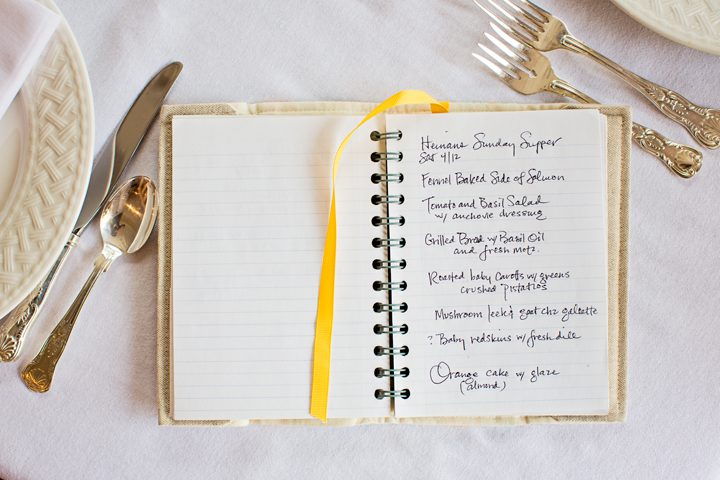 Heinans Sunday Supper
Sat 4/12
Fennel Baked Side of Salmon
Tomato and Basil Salad
w/ anchovie dressing
Grilled Bread w/ Basil Oil
and fresh motz.
Roasted baby carotts w/ greens
crushed pistatios
Mushroom leek & goat chz galette
? Baby redskins w/ fresh dill
Orange cake w/ glaze
(almond)